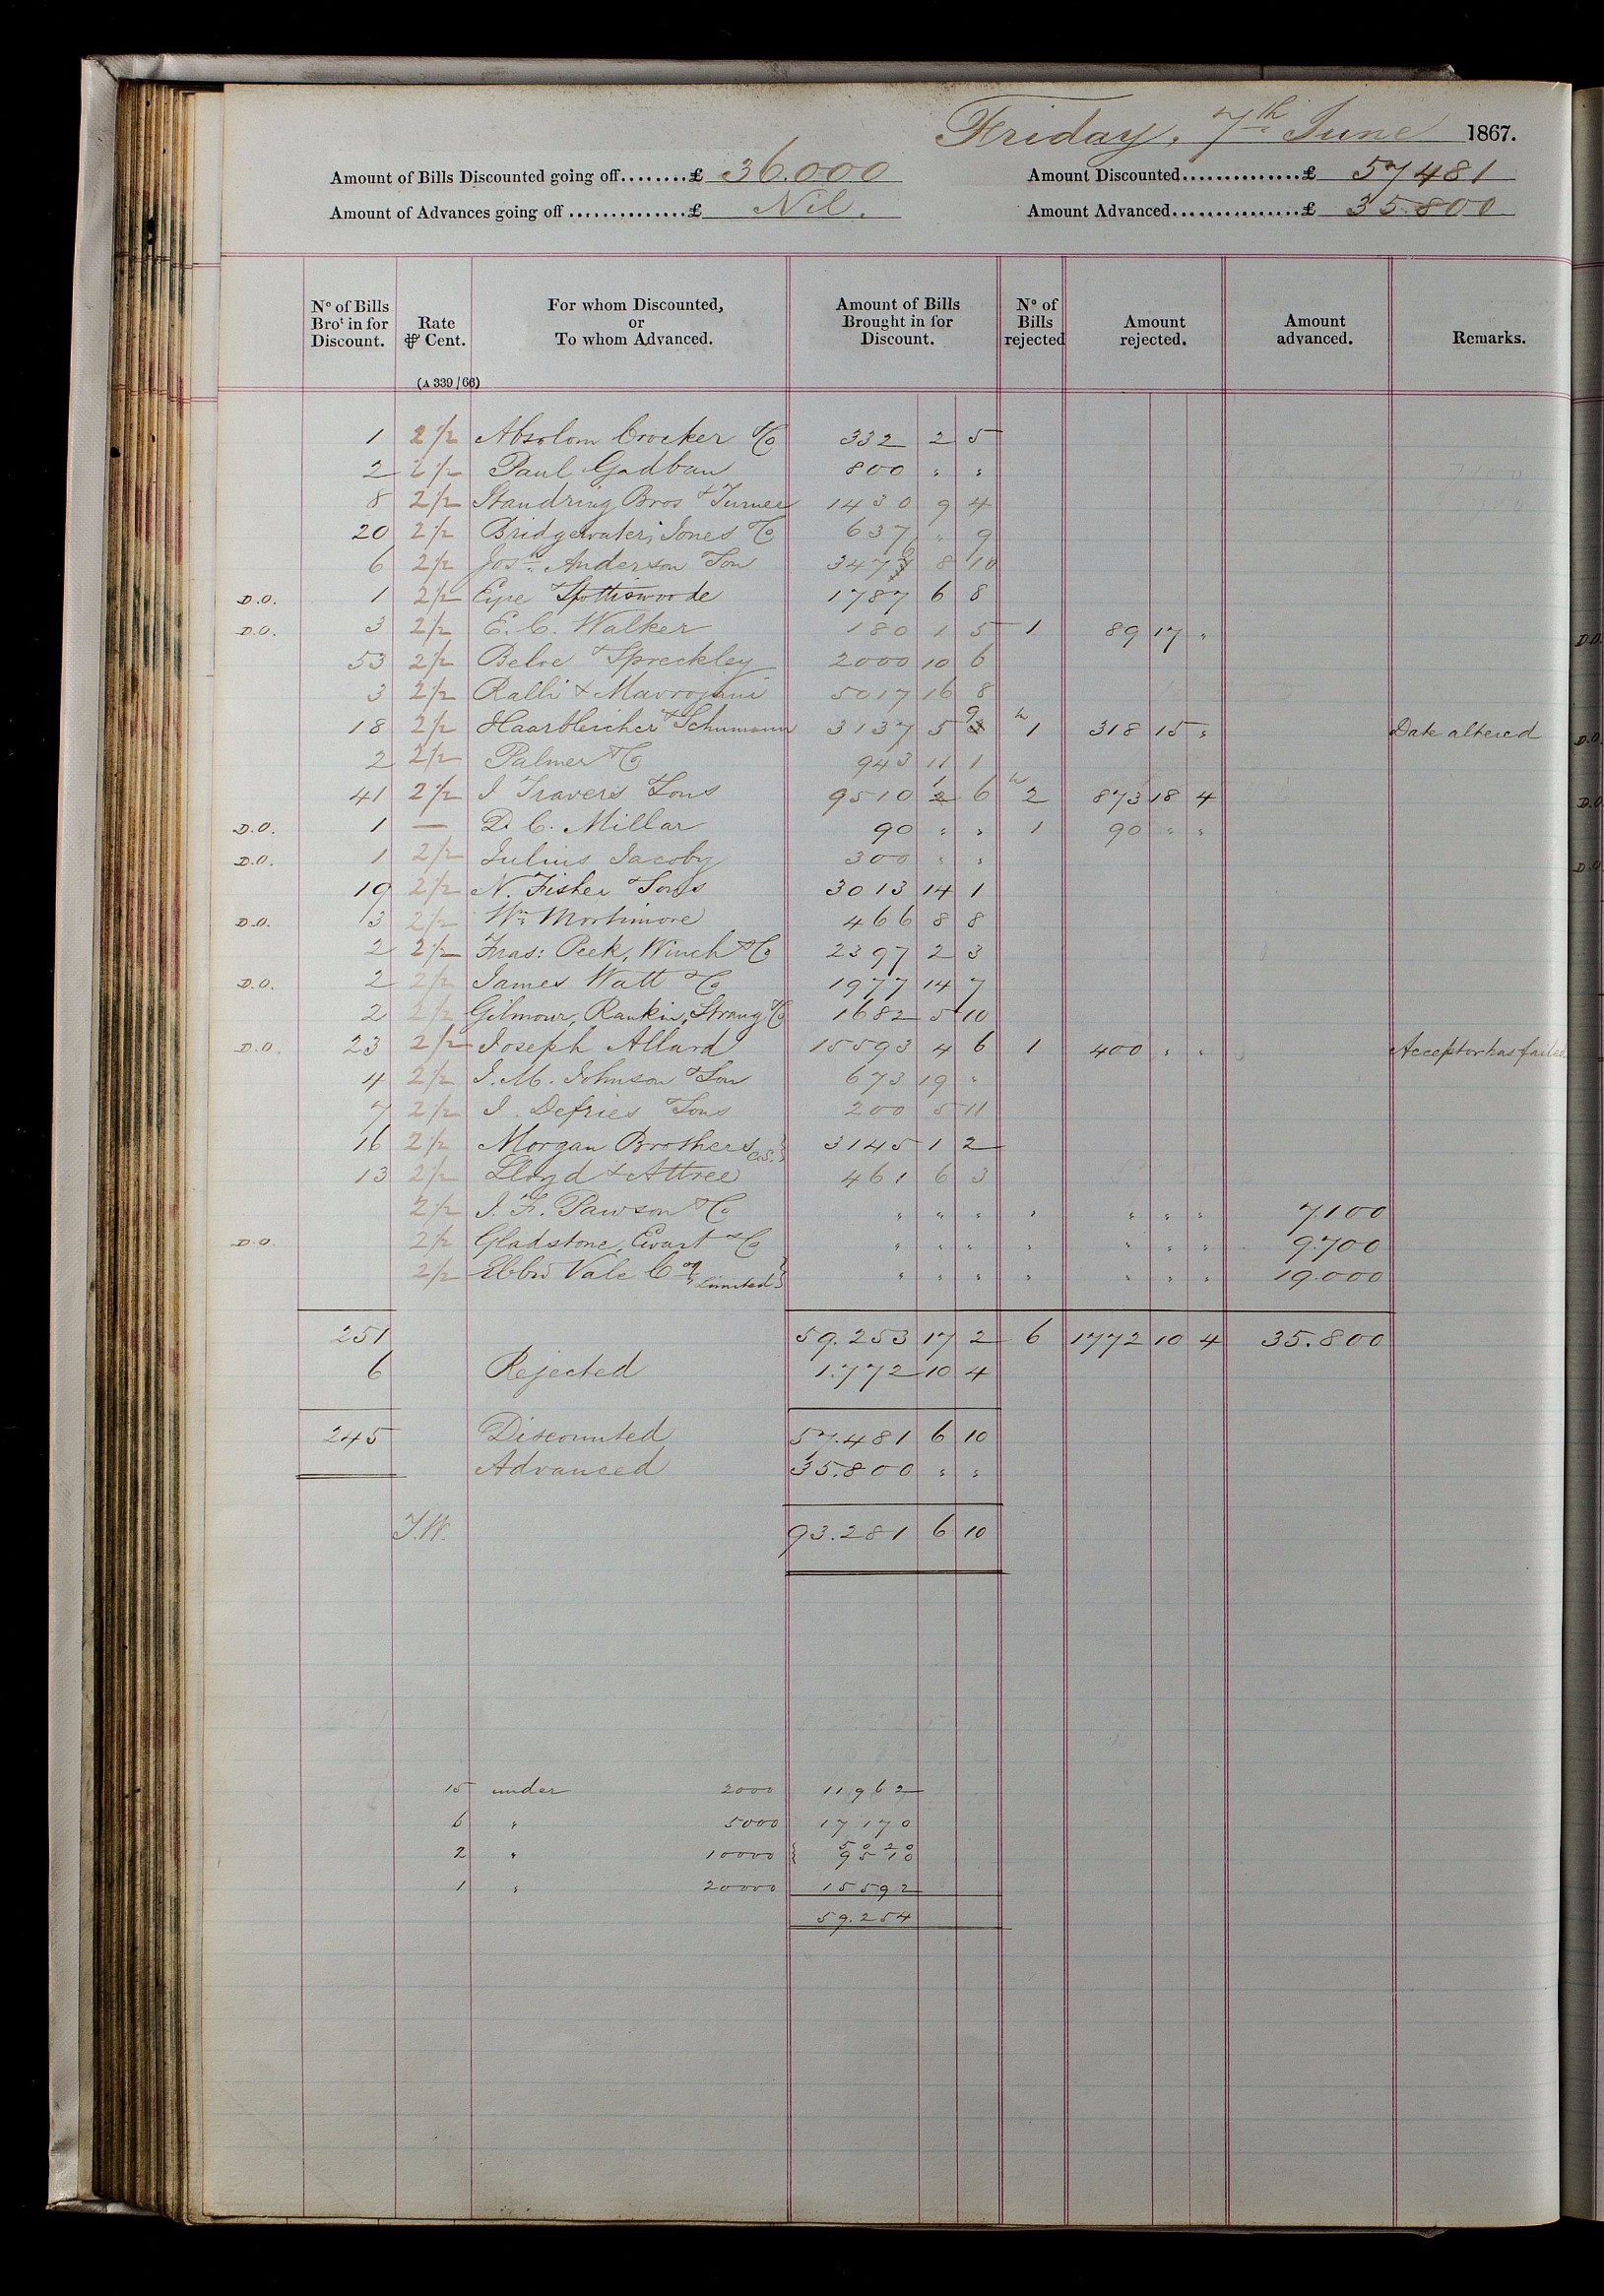 Friday, 7th June 1867.
Amount of Bills Discounted going off........£ 36.000 Amount Discounted..............£ 57481
Amount of Advances going off..............£ Nil. Amount Advanced...............£ 35.800
No of Bills Brot in for Discount. Rate ⅌ Cent. For whom Discounted, or To whom Advanced. Amount of Bills Brought in for Discount. No of Bills rejected Amount rejected. Amount advanced. Remarks.
(A 339/66)
1 2½ Absolom Crocker & Co 332 2 5
2 2½ Paul Gadban 800 " "
8 2½ Standring Bros & Turner 1430 9 4
20 2½ Bridgewater, Jones & Co 637 " 9
6 2½ Josh. Anderson & Son 347 8 10
D.O. 1 2½ Eyre & Spottiswoode 1787 6 8
D.O. 3 2½ E. C. Walker 180 1 5 1 89 17 "
53 2½ Beloe & Spreckley 2000 10 6
3 2½ Ralli & Mavrojani 5017 16 8
18 2½ Haarbleicher & Schumann 3137 5 9 1 318 15 " Date altered
2 2½ Palmer & Co 943 11 1
41 2½ J Travers & Sons 9510 1 6 2 873 18 4
D.O. 1 — D. C. Millar 90 " " 1 90 " "
D.O. 1 2½ Julius Jacoby 300 " "
19 2½ N. Fisher & Sons 3013 14 1
D.O. 3 2½ Wm Mortimore 466 8 8
2 2½ Fras: Peek, Winch & Co 2397 2 3
D.O. 2 2½ James Watt & Co 1977 14 7
2 2½ Gilmour, Rankin, Strang & Co 1682 5 10
D.O. 23 2½ Joseph Allard 15593 4 6 1 400 " " Acceptor has failed
4 2½ J. M. Johnson & Son 673 19 "
7 2½ J. Defries & Sons 200 5 11
16 2½ Morgan Brothers 3145 1 2
13 2½ Lloyd & Attree 461 6 3
2½ J. F. Pawson & Co " " " " " " " 7.100
D.O. 2½ Gladstone, Ewart & Co " " " " " " " 9.700
2½ Ebbw Vale Coy Limited " " " " " " " 19.000
251 59.253 17 2 6 1772 10 4 35.800
6 Rejected 1.772 10 4
245 Discounted 57.481 6 10
Advanced 35.800 " "
J.W. 93.281 6 10
15 under 2000 11962
6 " 5000 17170
2 " 10000 { 5020
9510
1 " 20000 15592
59.254